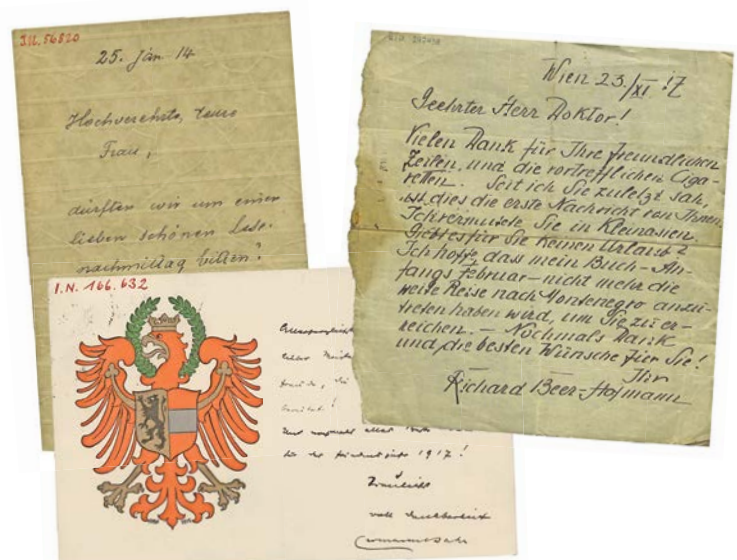 I.N. 56820
25. Jän 14
Hochverehrte, teure
Frau,
dürften wir um einen
lieben schönen Lese-
nachmittag bitten?
I.N. 166.632
Nur nochmals alles
für das Friedensjahr 1917!
Treulichst
voll Dankbarkeit
Hermann Bahr
Wien 23./XI 17
Geehrter Herr Doktor!
Vielen Dank für Ihre freundlichen
Zeilen, und die vortrefflichen Ciga-
retten. Seit ich Sie zuletzt sah,
ist dies die erste Nachricht von Ihnen.
Ich vermutete Sie in Kleinasien.
Giebt es für Sie keinen Urlaub?
Ich hoffe, dass mein Buch – An-
fangs Februar – nicht mehr die
weite Reise nach Montenegro anzu-
treten haben wird, um Sie zu er-
reichen. – Nochmals Dank
und die besten Wünsche für Sie!
Ihr
Richard Beer-Hofmann